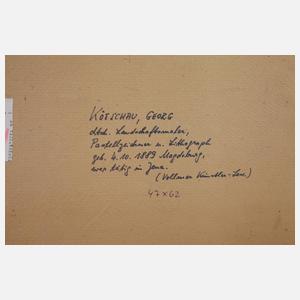 KÖTSCHAU, GEORG
dtsch. Landschaftsmaler,
Pastellzeichner u. Lithograph
geb. 4.10.1889 Magdeburg,
war tätig in Jena.
(Vollmer Künstler-Lex.)
47×62